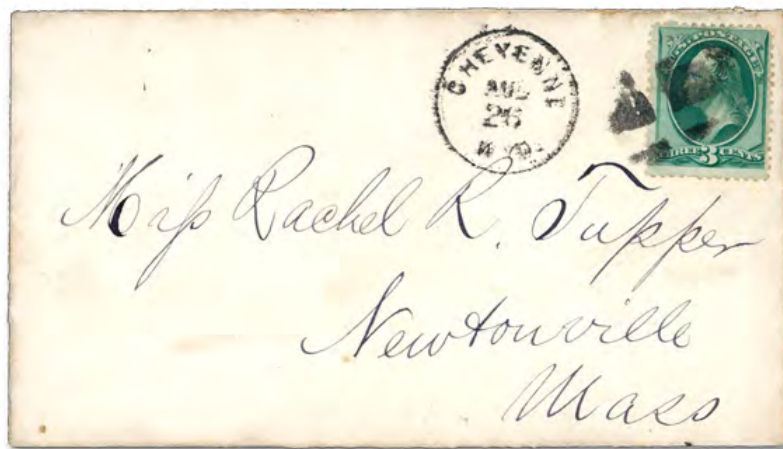 CHEYENNE
AUG
26
W.Y.O.
U.S. POSTAGE
THREE 3 CENTS
Miſs Rachel R. Tupper
Newtonville
Mass